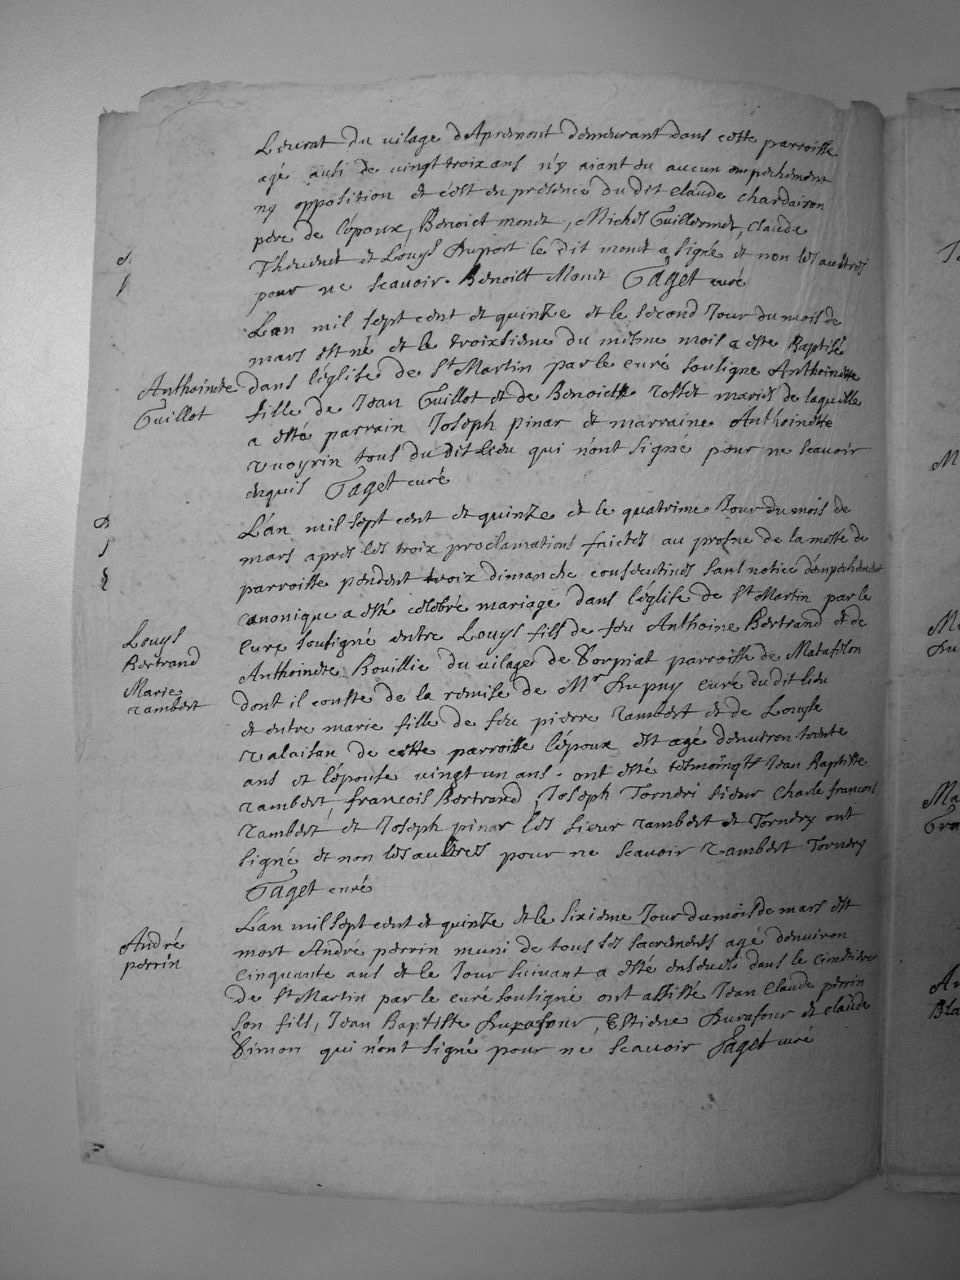 Leurat du vilage d'Apremont demeurant dans cette parroisse
agé aussi de vingt trois ans n'y aiant eu aucun empechement
ny opposition et c'est en présence du dit claude chardairon
pere de l'époux, Benoict monet, Michel Guillermet, claude
Thevenet et Louys Duport le dit monet a signé et non les aultres
pour ne scauoir. Benoict Monet Taget curé
Lan mil sept cent et quinze et le second Jour du mois de
mars est né et le troixsieme du mesme mois a esté Baptisé
Anthoinette dans l'église de St Martin par le curé soutigne Anthoinette
Guillot fille de Jean Guillot et de Benoictte rosset mariés de laquelle
a esté parrain Joseph pinar et marraine Anthoinette
vuoyrin tous du dit lieu qui n'ont signé pour ne scauoir
enquis Taget curé
L'an mil sept cent et quinze et le quatrime Jour du mois de
mars apres les troix proclamations faictes au prosne de la messe de
parroisse pendent troix dimanche consecutives sans notice d'empechement
canonique a esté celebré mariage dans l'église de St Martin par le
curé soutigné entre Louys fils de feu Anthoine Bertrand et de
Louys
Bertrand
Marie
rambert
Anthoinette Bouillie du vilage de parroisse de Matafelon
dont il conste de la remise de Mr Dupuy curé du dit lieu
et entre marie fille de feu pierre rambert et de Louyse
valaisan de cette parroisse l'époux est agé denviron trente
ans et l'épouse vingt un ans. ont esté tesmoingts Jean Baptiste
rambert, francois Bertrand, Joseph Tornery sieur Charle francois
rambert et Joseph pinar les sieur rambert et Tornery ont
signé et non les aultres pour ne scauoir rambert Tornery
Taget curé
Lan mil sept cent et quinze et le sixieme Jour du mois de mars est
André
perrin
mort André perrin muni de tous les sacrements agé denviron
cinquante ans et le Jour suivant a esté enseveli dans le cimetiere
de St Martin par le curé soutigné ont assisté Jean Claude perrin
son fils, Jean Baptiste Durafour, Estiene Durafour et claude
Simon qui n'ont signé pour ne scauoir Taget curé